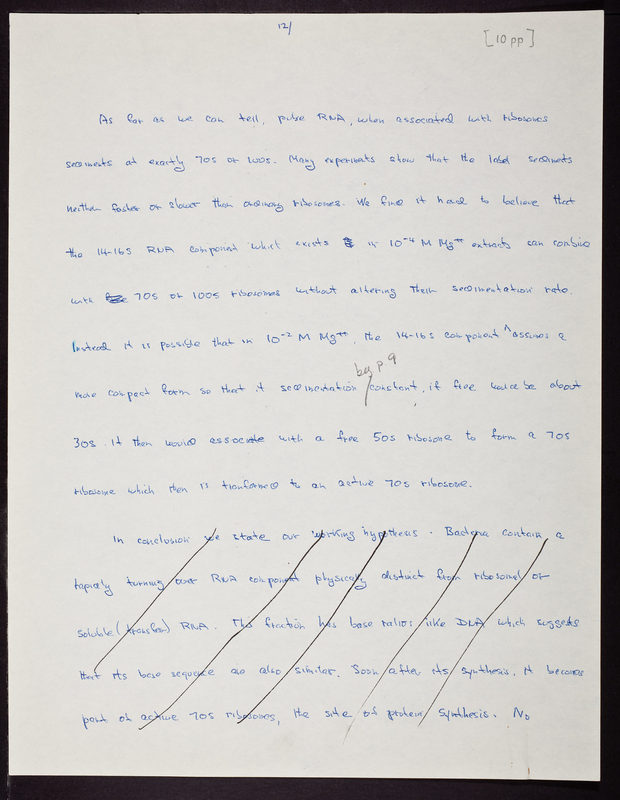 12/
[10 pp]
As far as we can tell, pulse RNA, when associated with ribosomes
sediments at exactly 70s or 100s. Many experiments show that the label sediments
neither faster or slower than ordinary ribosomes. We find it hard to believe that
the 14-16s RNA component which exists in 10⁻⁴ M Mg⁺⁺ extracts can combine
with 70s or 100s ribosomes without altering their sedimentation rate.
Instead it is possible that in 10⁻² M Mg⁺⁺, the 14-16s component ^ assumes a
beg p 9
more compact form so that it sedimentation constant, if free would be about
30s. It then would associate with a free 50s ribosome to form a 70s
ribosome which then is transformed to an active 70s ribosome.
In conclusion we state our working hypothesis. Bacteria contain a
rapidly turning over RNA component physically distinct from ribosomal or
soluble (transfer) RNA. This fraction has base ratios like DNA which suggests
that its base sequence are also similar. Soon after its synthesis, it becomes
part of active 70s ribosomes, the site of protein synthesis. No